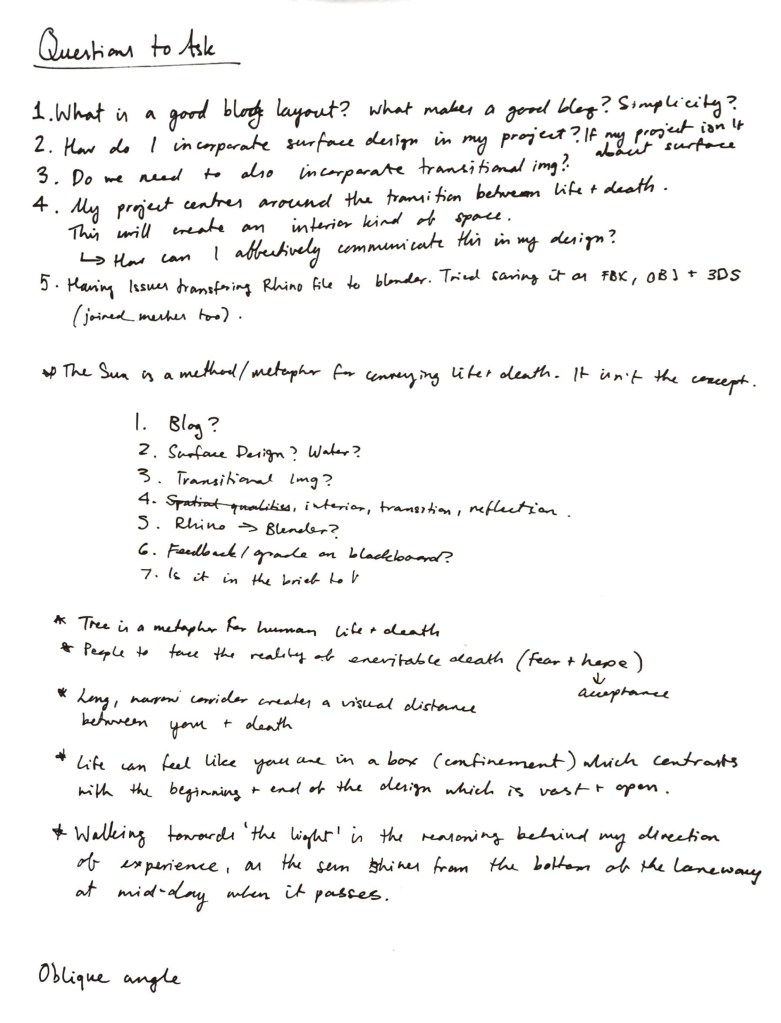 Questions to Ask
1. What is a good blog layout? What makes a good blog? Simplicity?
2. How do I incorporate surface design in my project? If my project isn't
about surface
3. Do we need to also incorporate transitional img?
4. My project centres around the transition between life + death.
This will create an interior kind of space.
↳ How can I affectively communicate this in my design?
5. Having Issues transfering Rhino file to blender. Tried saving it as FBX, OBJ + 3DS
(joined meshes too).
* The Sun is a method/metaphor for conveying life + death. It isn't the concept.
1. Blog?
2. Surface Design? Water?
3. Transitional Img?
4. Spatial qualities, interior, transition, reflection.
5. Rhino → Blender?
6. Feedback/grade on blackboard?
7. Is it in the brief to
* Tree is a metaphor for human life + death
* People to face the reality of enevitable death (fear + hope)
↓
acceptance
* Long, narrow corrider creates a visual distance
between your + death
* Life can feel like you are in a box (confinement) which contrasts
with the beginning + end of the design which is vast + open.
* Walking towards 'the light' is the reasoning behind my direction
of experience, as the sun shines from the bottom of the laneway
at mid-day when it passes.
Oblique angle